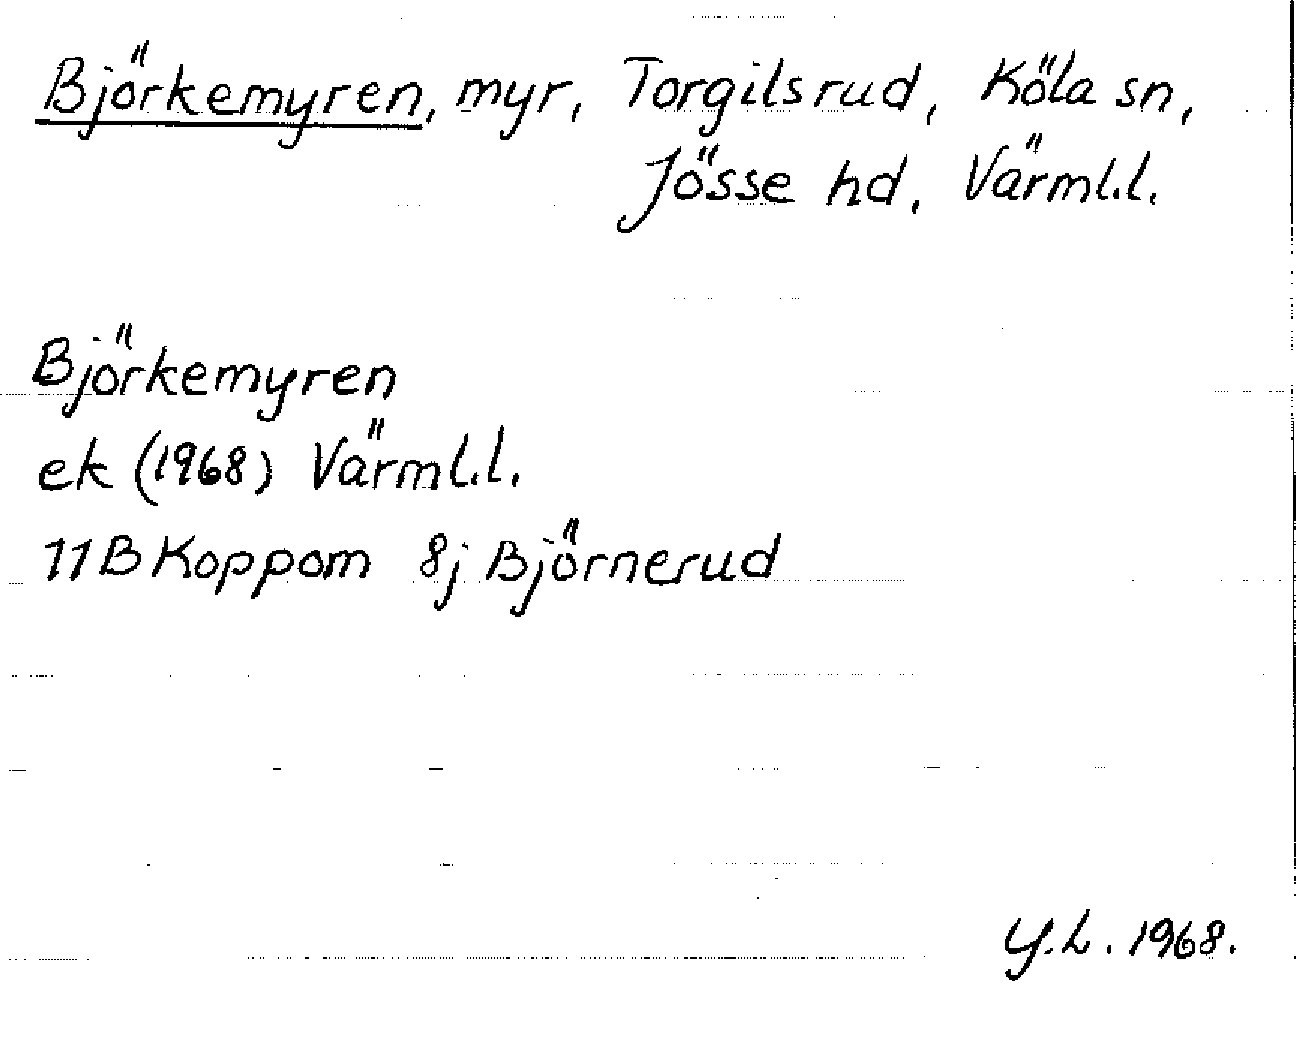 Björkemyren, myr, Torgilsrud, Köla sn,
Jösse hd, Värml.l.
Björkemyren
ek (1968) Värml.l.
11B Koppom 8j Björnerud
Y.L. 1968.